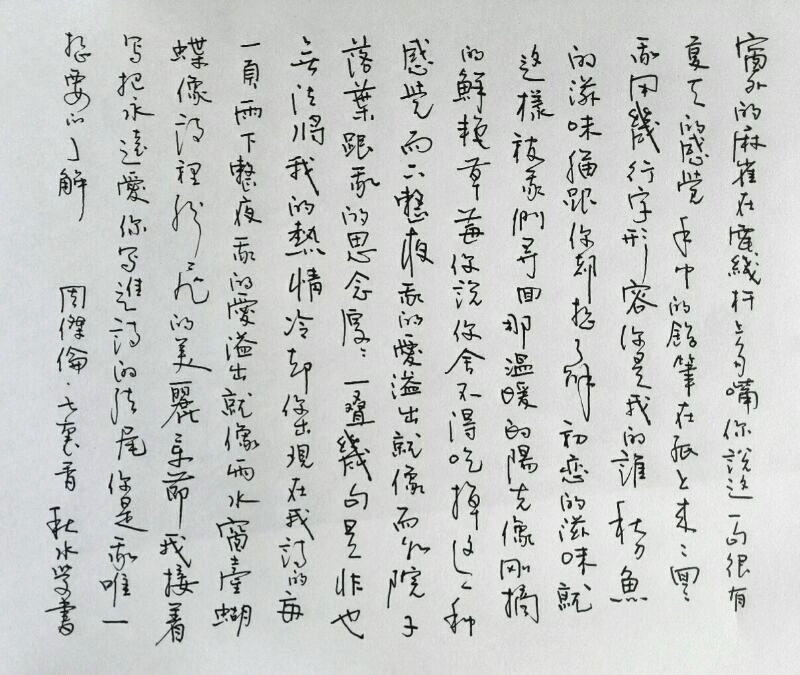 窗外的麻雀在電线杆上多嘴你說這一句很有
夏天的感觉手中的鉛筆在紙上来〻回〻
我用幾行字形容你是我的誰 秋刀魚
的滋味猫跟你都想了解 初恋的滋味就
这樣被我們寻回那温暖的陽光像刚摘
的鲜艳草莓你說你舍不得吃掉这一种
感觉雨下整夜我的愛溢出就像雨水院子
落葉跟我的思念厚〻一疊幾句是非也
无法將我的熱情冷却你出現在我詩的每
一頁雨下整夜我的愛溢出就像雨水窗臺蝴
蝶像詩裡紛飞的美麗章節我接着
写把永遠愛你写進詩的结尾你是我唯一
想要的了解 周傑倫·七裏香 秋水學書